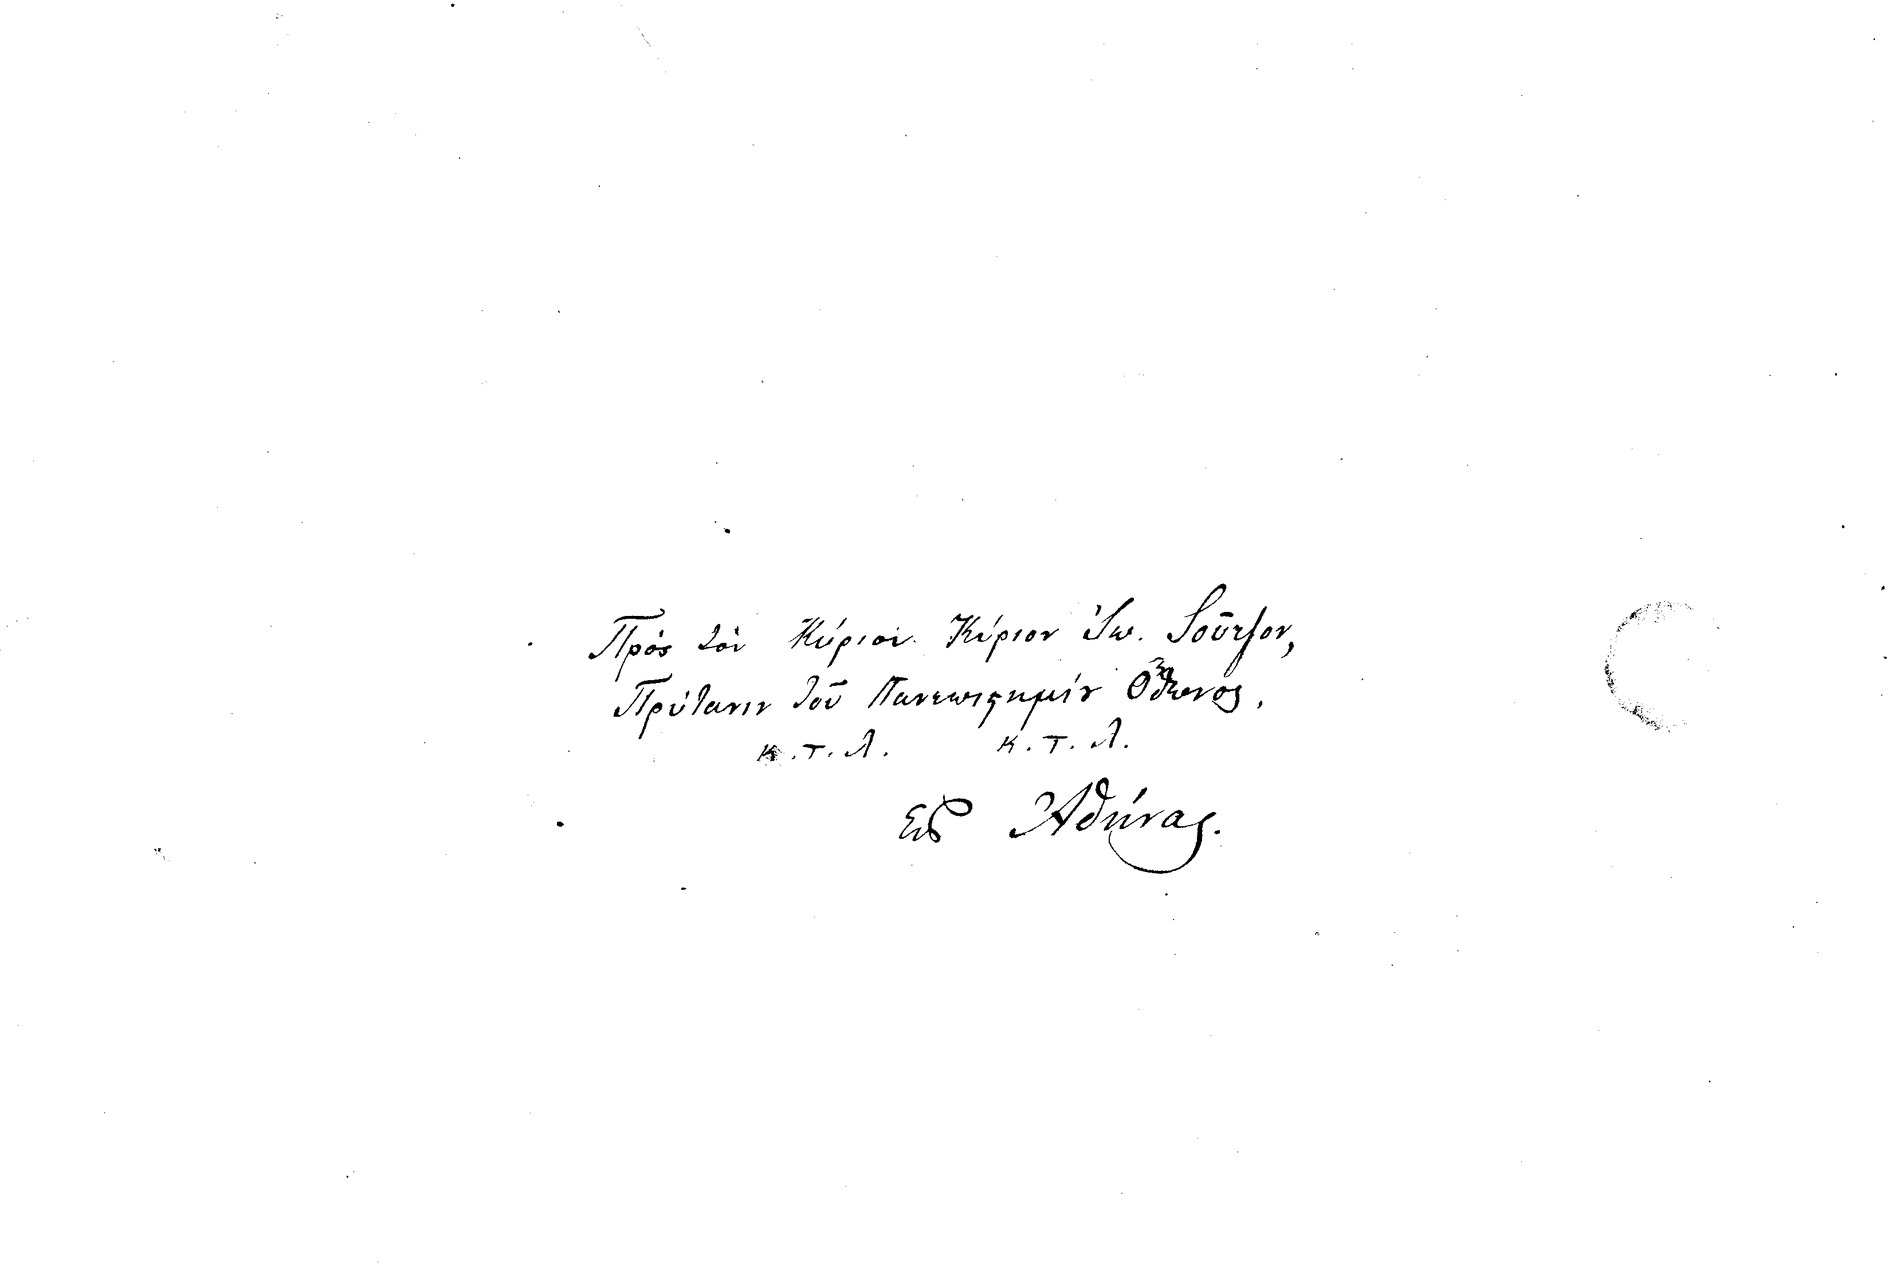 Πρὸς τὸν Κύριον Κύριον Ἰω. Σοῦτζον,
Πρύτανιν τοῦ Πανεπιστημίου Ὄθωνος,
κ.τ.λ. κ.τ.λ.
Εἰς Ἀθήνας.